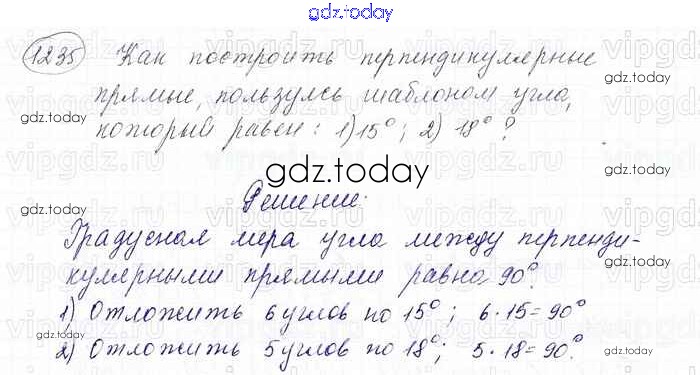 gdz.today
1235 Как построить перпендикулярные
прямые, пользуясь шаблоном угла,
который равен: 1) 15°; 2) 18°?
Решение:
Градусная мера угла между перпенди-
кулярными прямыми равна 90°.
1) Отложить 6 углов по 15°; 6·15=90°
2) Отложить 5 углов по 18°; 5·18=90°.
gdz.today
gdz.today
gdz.today
gdz.today
gdz.today
gdz.today
gdz.today